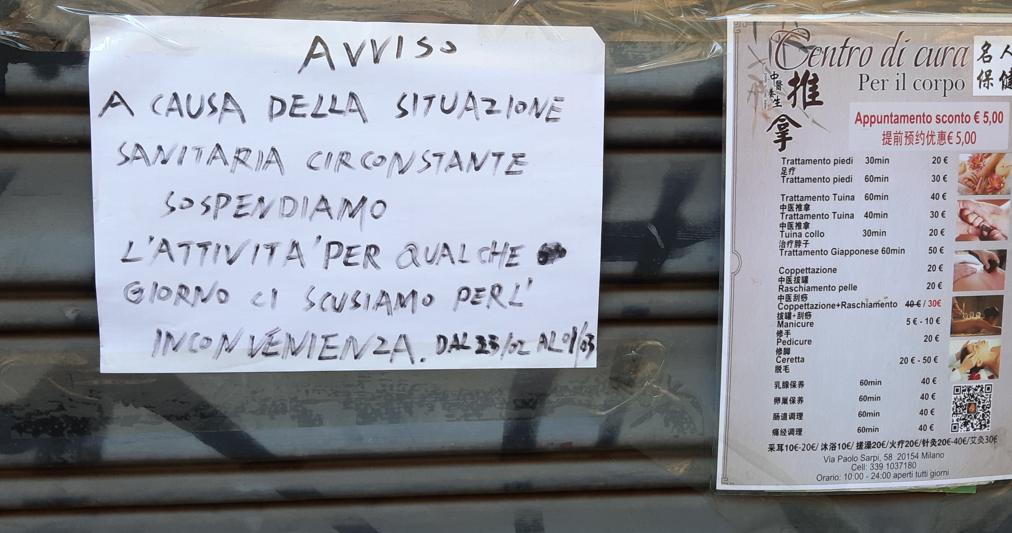 AVVISO
A CAUSA DELLA SITUAZIONE
SANITARIA CIRCONSTANTE
SOSPENDIAMO
L'ATTIVITA' PER QUALCHE
GIORNO CI SCUSIAMO PER L'
INCONVENIENZA. DAL 23/02 AL 01/03
Centro di cura
Per il corpo
名人
保健
中醫養生
推拿
Appuntamento sconto € 5,00
提前预约优惠€ 5,00
Trattamento piedi 30min 20 €
足疗
Trattamento piedi 60min 30 €
Trattamento Tuina 60min 40 €
中医推拿
Trattamento Tuina 40min 30 €
中医推拿
Tuina collo 30min 20 €
治疗脖子
Trattamento Giapponese 60min 50 €
Coppettazione 20 €
中医拔罐
Raschiamento pelle 20 €
中医刮痧
Coppettazione+Raschiamento 40 € / 30€
拔罐+刮痧
Manicure 5 € - 10 €
修手
Pedicure 20 €
修脚
Ceretta 20 € - 50 €
脱毛
乳腺保养 60min 40 €
卵巢保养 60min 40 €
肠道调理 60min 40 €
痛经调理 60min 40 €
采耳10€-20€/ 沐浴10€/ 搓澡20€/火疗20€/针灸20€-40€/艾灸30€
Via Paolo Sarpi, 58 20154 Milano
Cell: 339 1037180
Orario: 10:00 - 24:00 aperti tutti giorni